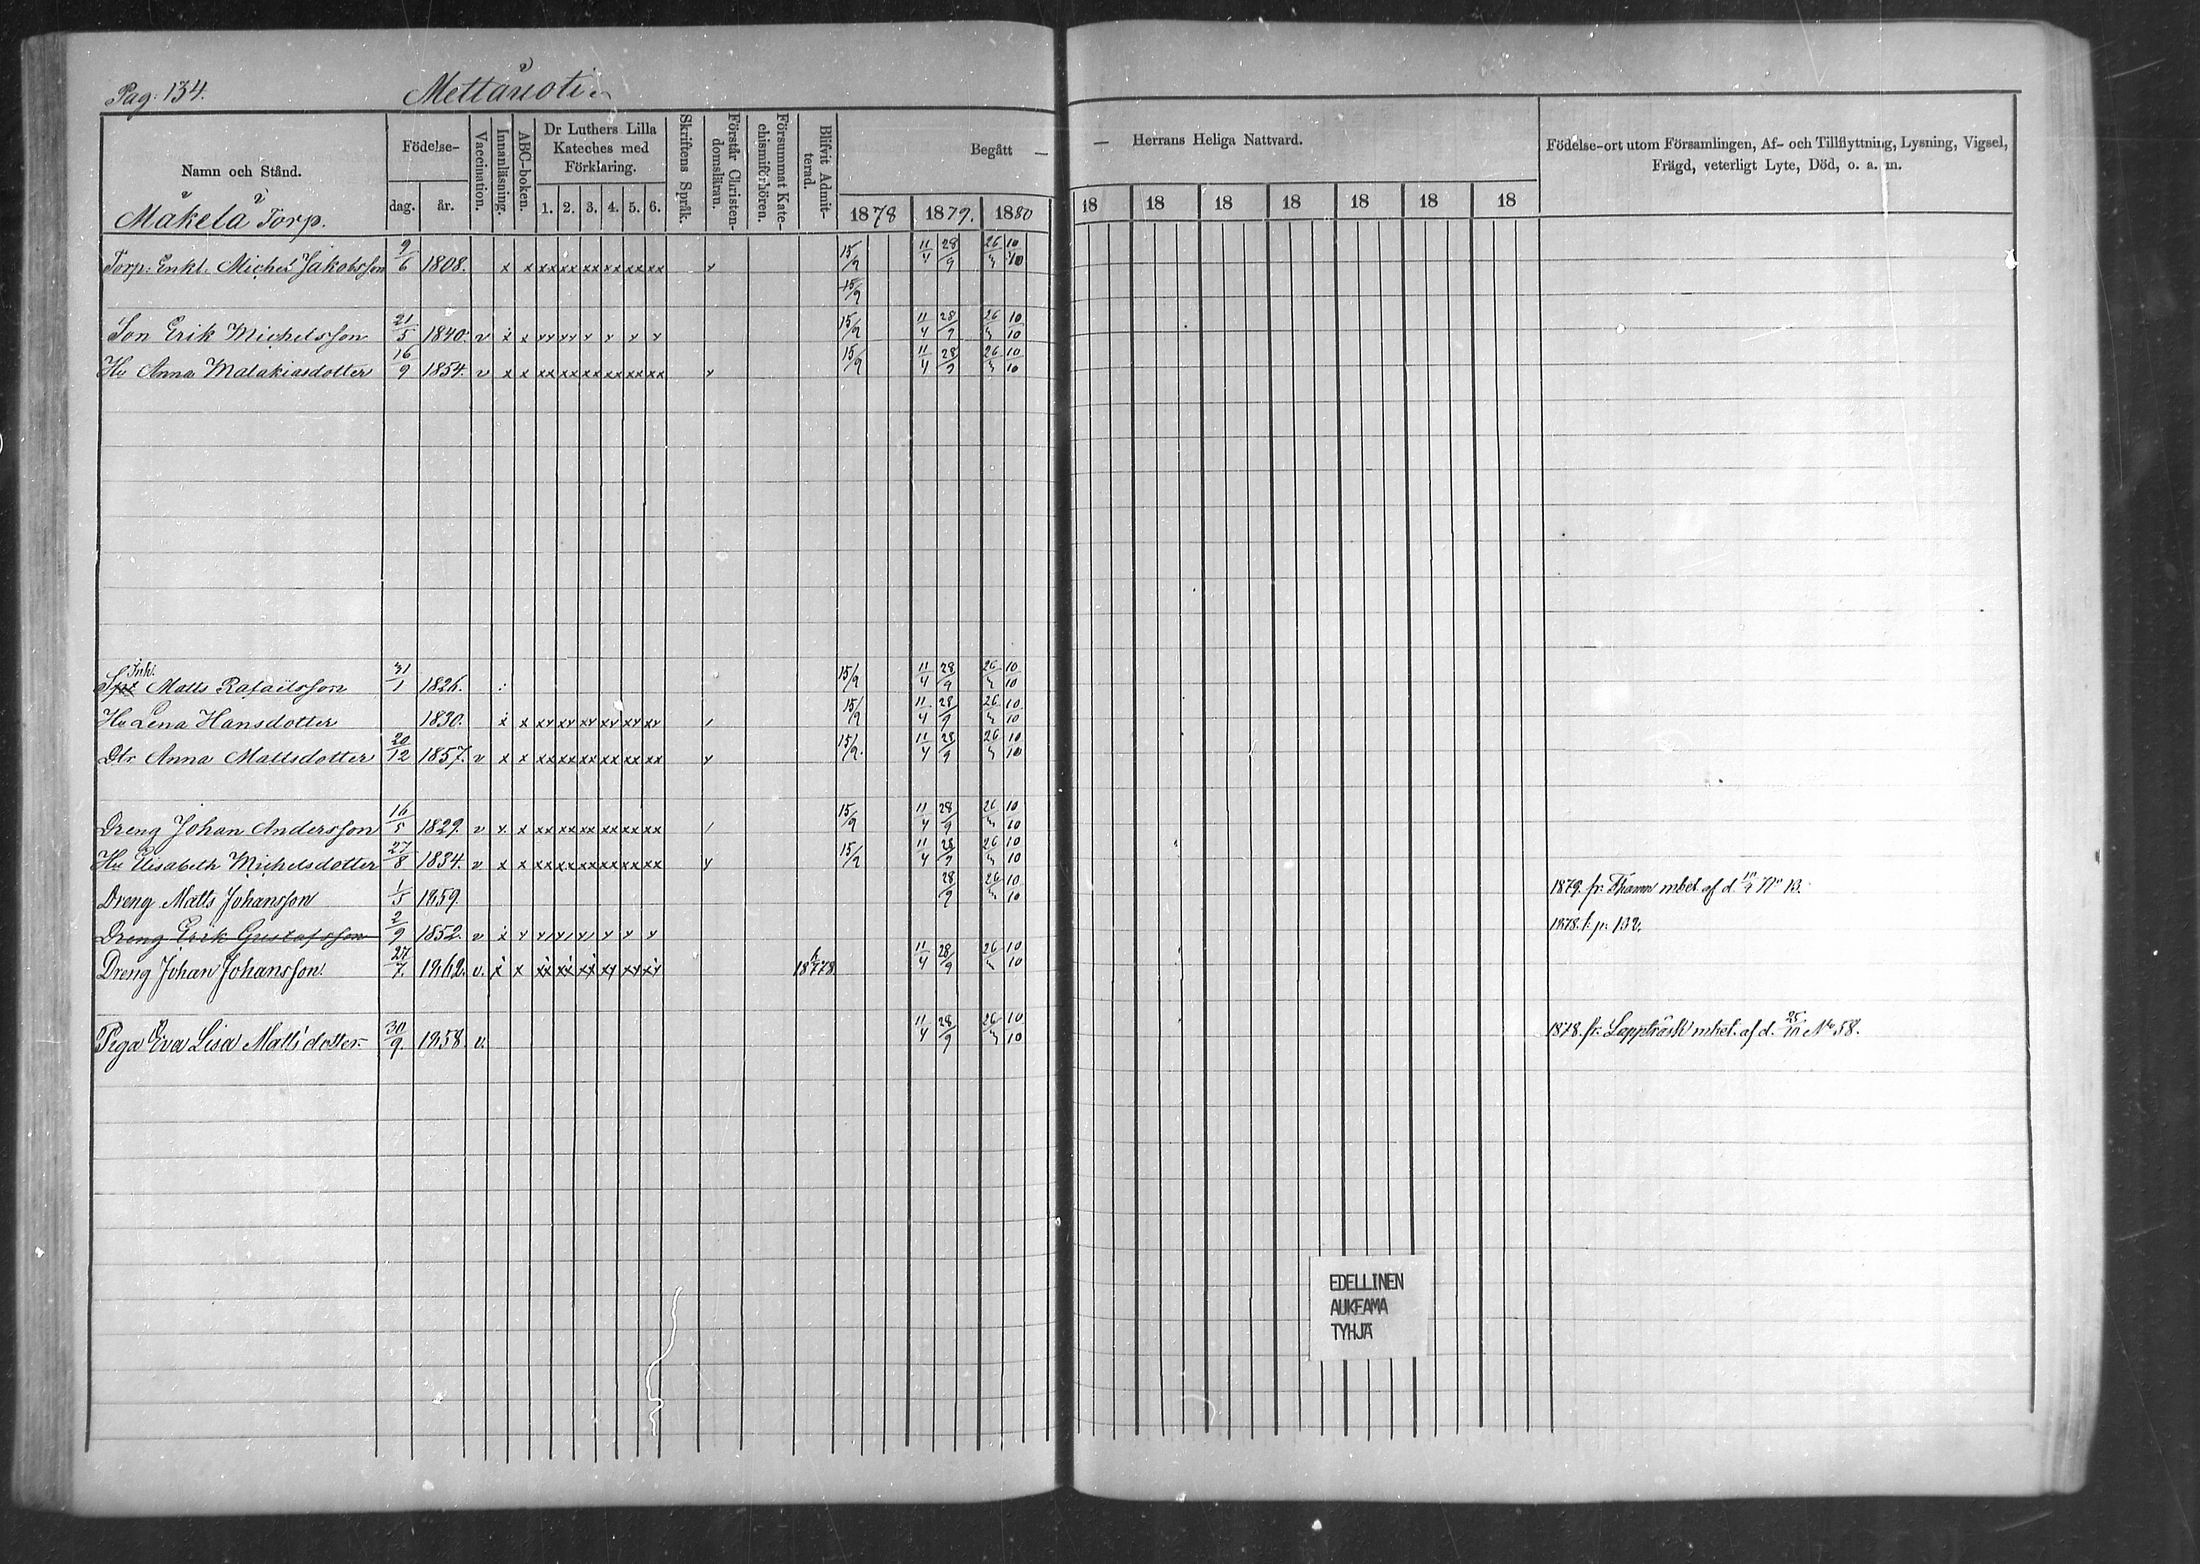 Pag: 134.
Mettäuoti
Namn och Stånd.
Födelse-
dag. år.
Vaccination.
Innanläsning.
ABC-boken.
Dr Luthers Lilla
Kateches med
Förklaring.
1. 2. 3. 4. 5. 6.
Skriftens Språk.
Förstår Christen-
domsläran.
Försummat Kate-
chismiförhören.
Blifvit Admit-
terad.
Begått —
— Herrans Heliga Nattvard.
1878 1879. 1880 18 18 18 18 18 18 18
Födelse-ort utom Församlingen, Af- och Tillflyttning, Lysning, Vigsel,
Frägd, veterligt Lyte, Död, o. a. m.
Mäkelä Torp.
Torp: Enkl. Michel Jakobsson 9/6 1808. x x xx xx xx xx xx xx 15/9 11/4 28/9 26/ 10/10
15/9
Son Erik Michelsson 21/5 1840. v x x 15/9 11/4 28/9 26/ 10/10
Hu Anna Malakiasdotter 16/9 1854. v x x xx xx xx xx xx xx 15/9 11/4 28/9 26/ 10/10
Inh.
Matts Rafaelsson 31/1 1826. 15/9 11/4 28/9 26/ 10/10
Hu Lena Hansdotter 1830. x x 15/9 11/4 28/9 26/ 10/10
Dtr Anna Mattsdotter 20/12 1857. v x x xx xx xx xx xx xx 15/9. 11/4 28/9 26/ 10/10
Dreng Johan Andersson 16/5 1829. v x x xx xx xx xx xx xx 15/9 11/4 28/9 26/ 10/10
Hu Elisabeth Michelsdotter 27/8 1834. v x x xx xx xx xx xx xx 15/9 11/4 28/9 26/ 10/10
Dreng Matts Johansson 1/5 1859 28/9 26/ 10/10 1879. fr. mbet. af d.
Dreng Erik Gustafsson 2/9 1852. v x 1878. t. p. 132.
Dreng Johan Johansson 27/7 1862. v. x x 11/4 28/9 26/ 10/10
Piga Eva Lisa Mattsdotter 30/9 1858. v. 11/4 28/9 26/ 10/10 1878. fr. Lappträsk mbet. af d. 25/10 No 58.
EDELLINEN
AUKEAMA
TYHJÄ